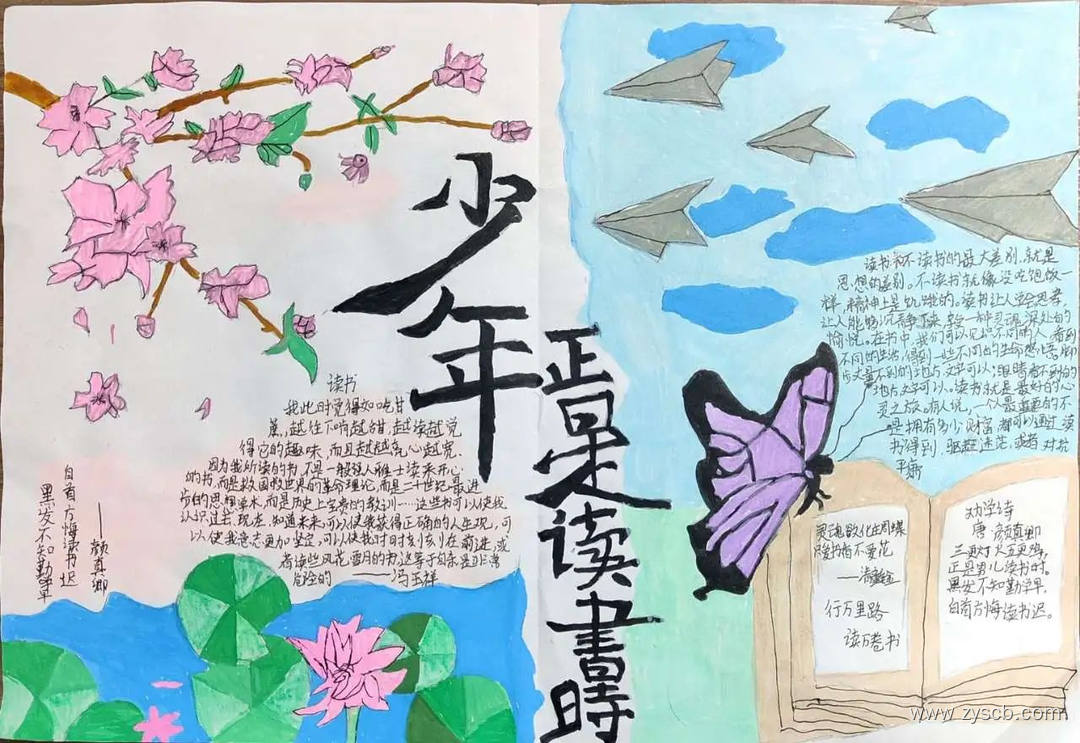 少年
正是读書時
读书
我此时觉得如吃甘
蔗,越往下啃越甜,越读越觉
得它的趣味,而且越越觉心越宽.
因为我所读的书,不是一般骚人雅士读来开心
的书,而是救国救世界的革命理论,而是二十世纪最进
步的思想学术,而是历史上宝贵的教训……这些书可以使我
认识过去,现在,知道未来,可以使我获得正确的人生观,可
以使我意志更加坚定,可以使我时时刻刻在前进,或
者读些风花雪月的书,这等于自杀,是非常
危险的 ——冯玉祥
黑发不知勤学早
白首方悔读书迟
——颜真卿
读书和不读书的最大差别,就是
思想的差别,不读书就像没吃饱饭一
样,精神上是饥饿的,读书让人学会思考,
让人能够沉静下来,享受一种灵魂深处的
愉悦。在书中,我们可以见识不同的人,看到
不同的生活,得到一些不同的生命感悟,脚
步丈量不到的地方,文字可以;眼睛看不到的
地方,文字可以。读书就是最好的心
灵之旅,有人说,一个最重要的不
是拥有多少财富,都可以通过读
书得到,驱赶迷茫,或者对抗
平庸
灵魂欲化庄周蝶
只爱书香不爱花
行万里路
读万卷书
劝学诗
唐·颜真卿
三更灯火五更鸡,
正是男儿读书时,
黑发不知勤学早,
白首方悔读书迟。
www.zyscb.com